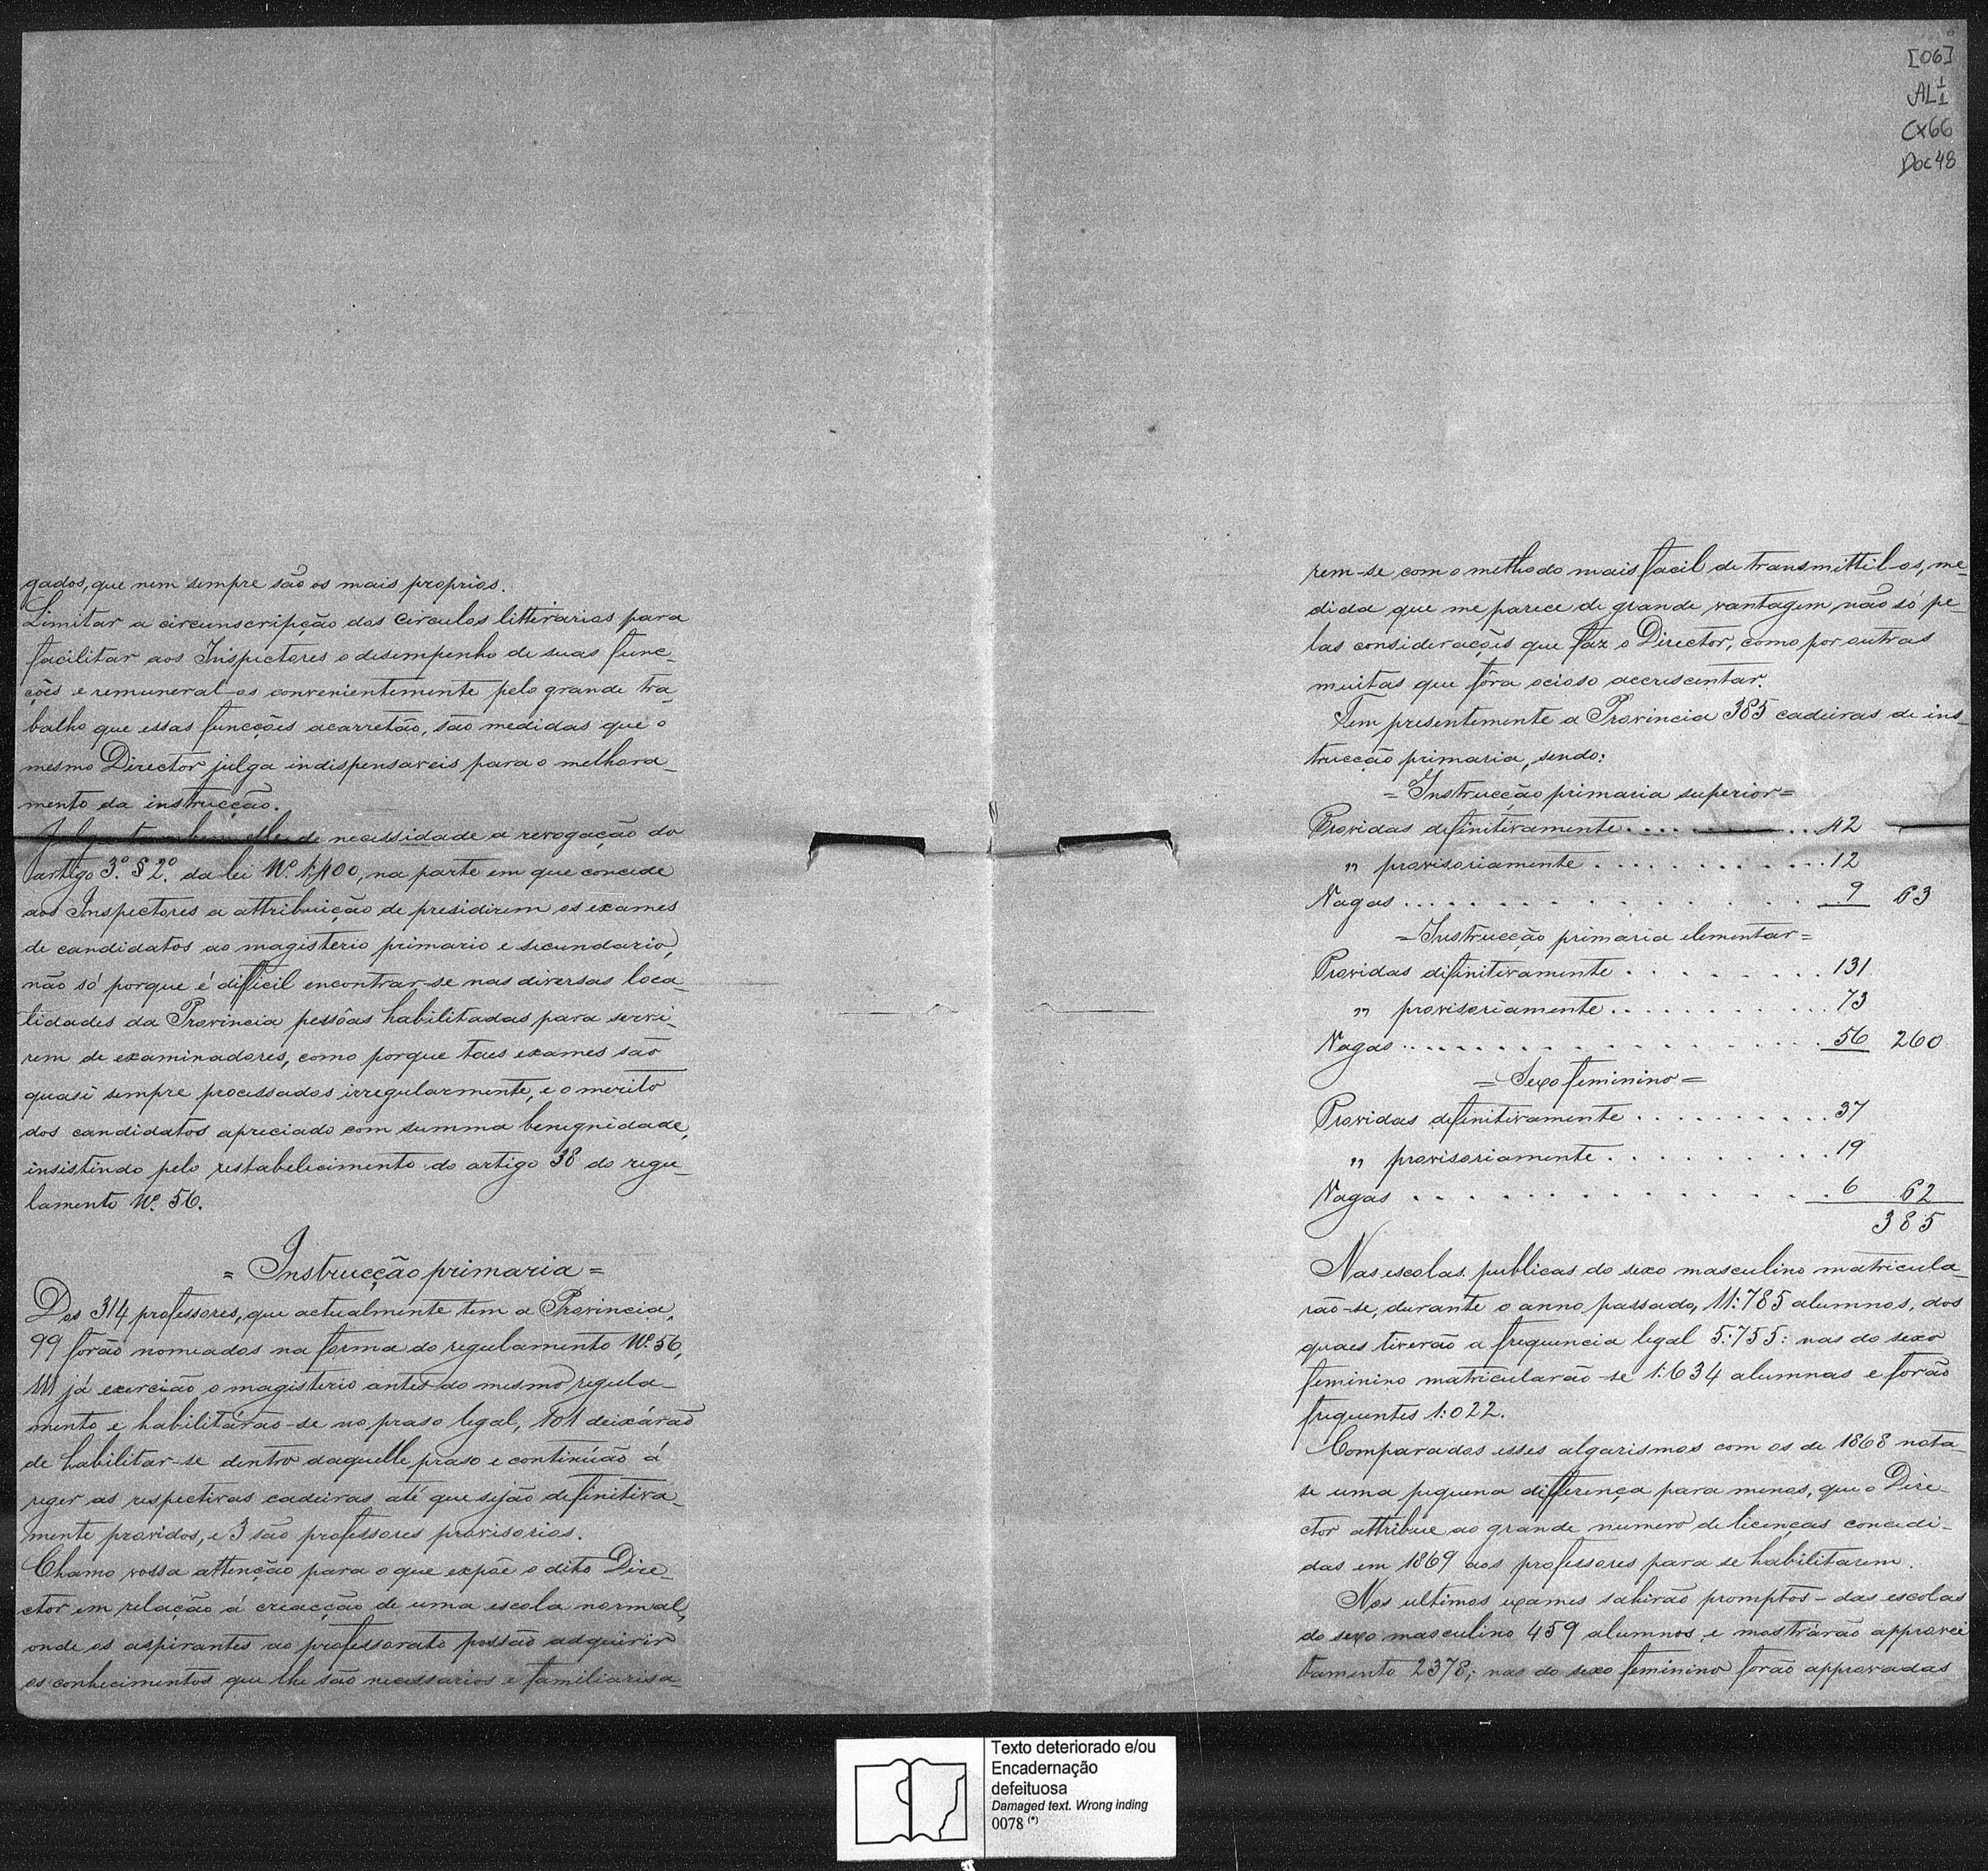 gados, que nem sempre são os mais proprios.
Limitar a circunscripção dos circulos litterarios para
facilitar aos Inspectores o desempenho de suas func-
ções e remuneral-os convenientemente pelo grande tra-
balho que essas funcções acarretão, são medidas que o
mesmo Director julga indispensaveis para o melhora-
mento da instrucção.
Julga tambem elle de necessidade a revogação do
artigo 3º. § 2º. da lei Nº. 1:400, na parte em que concede
aos Inspectores a attribuição de presidirem os exames
de candidatos ao magisterio primario e secundario,
não só porque é difficil encontrar-se nas diversas loca-
lidades da Provincia pessôas habilitadas para servi-
rem de examinadores, como porque taes exames são
quasi sempre processados irregularmente, e o merito
dos candidatos apreciado com summa benignidade,
insistindo pelo restabelecimento do artigo 38 do regu-
lamento Nº. 56.
= Instrucção primaria =
Dos 314 professores, que actualmente tem a Provincia,
99 forão nomeados na forma do regulamento Nº. 56,
111 já exercião o magisterio antes do mesmo regula-
mento e habilitárão-se no praso legal, 101 deixárão
de habilitar-se dentro daquelle praso e continúão á
reger as respectivas cadeiras até que sejão definitiva-
mente providos, e 3 são professores provisorios.
Chamo vossa attenção para o que expõe o dito Dire-
ctor em relação á creacção de uma escola normal,
onde os aspirantes ao professorato possão adquirir
os conhecimentos que lhe são necessarios e familiarisa-
[06]
AL 1/1
Cx66
Doc 48
rem-se com o methodo mais facil de transmittil-os, me-
dida que me parece de grande vantagem não só pe-
las considerações que faz o Director, como por outras
muitas que fôra ocioso accrescentar.
Tem presentemente a Provincia 385 cadeiras de ins-
trucção primaria, sendo:
= Instrucção primaria superior =
Providas definitivamente . . . . . . . . 42
" provisoriamente . . . . . . . . . . . 12
Vagas . . . . . . . . . . . . . . . . 9 63
= Instrucção primaria elementar =
Providas difinitivamente . . . . . . . . 131
" provisoriamente . . . . . . . . . . 73
Vagas . . . . . . . . . . . . . . . . 56 260
= Sexo feminino =
Providas definitivamente . . . . . . . . . 37
" provisoriamente . . . . . . . . . . 19
Vagas . . . . . . . . . . . . . . . . 6 62
385
Nas escolas publicas do sexo masculino matricula-
rão-se, durante o anno passado, 11:785 alumnos, dos
quaes tiverão a frequencia legal 5:755: nas do sexo
feminino matricularão-se 1:634 alumnas e forão
frequentes 1:022.
Comparados esses algarismos com os de 1868 nota-
se uma pequena differença para menos, que o Dire-
ctor attribue ao grande numero de licenças concedi-
das em 1869 aos professores para se habilitarem.
Nos ultimos exames sahirão promptos - das escolas
do sexo masculino 459 alumnos e mostrárão approvei
tamento 2378; nas do sexo feminino forão approvadas
Texto deteriorado e/ou
Encadernação
defeituosa
Damaged text. Wrong inding
0078 (*)